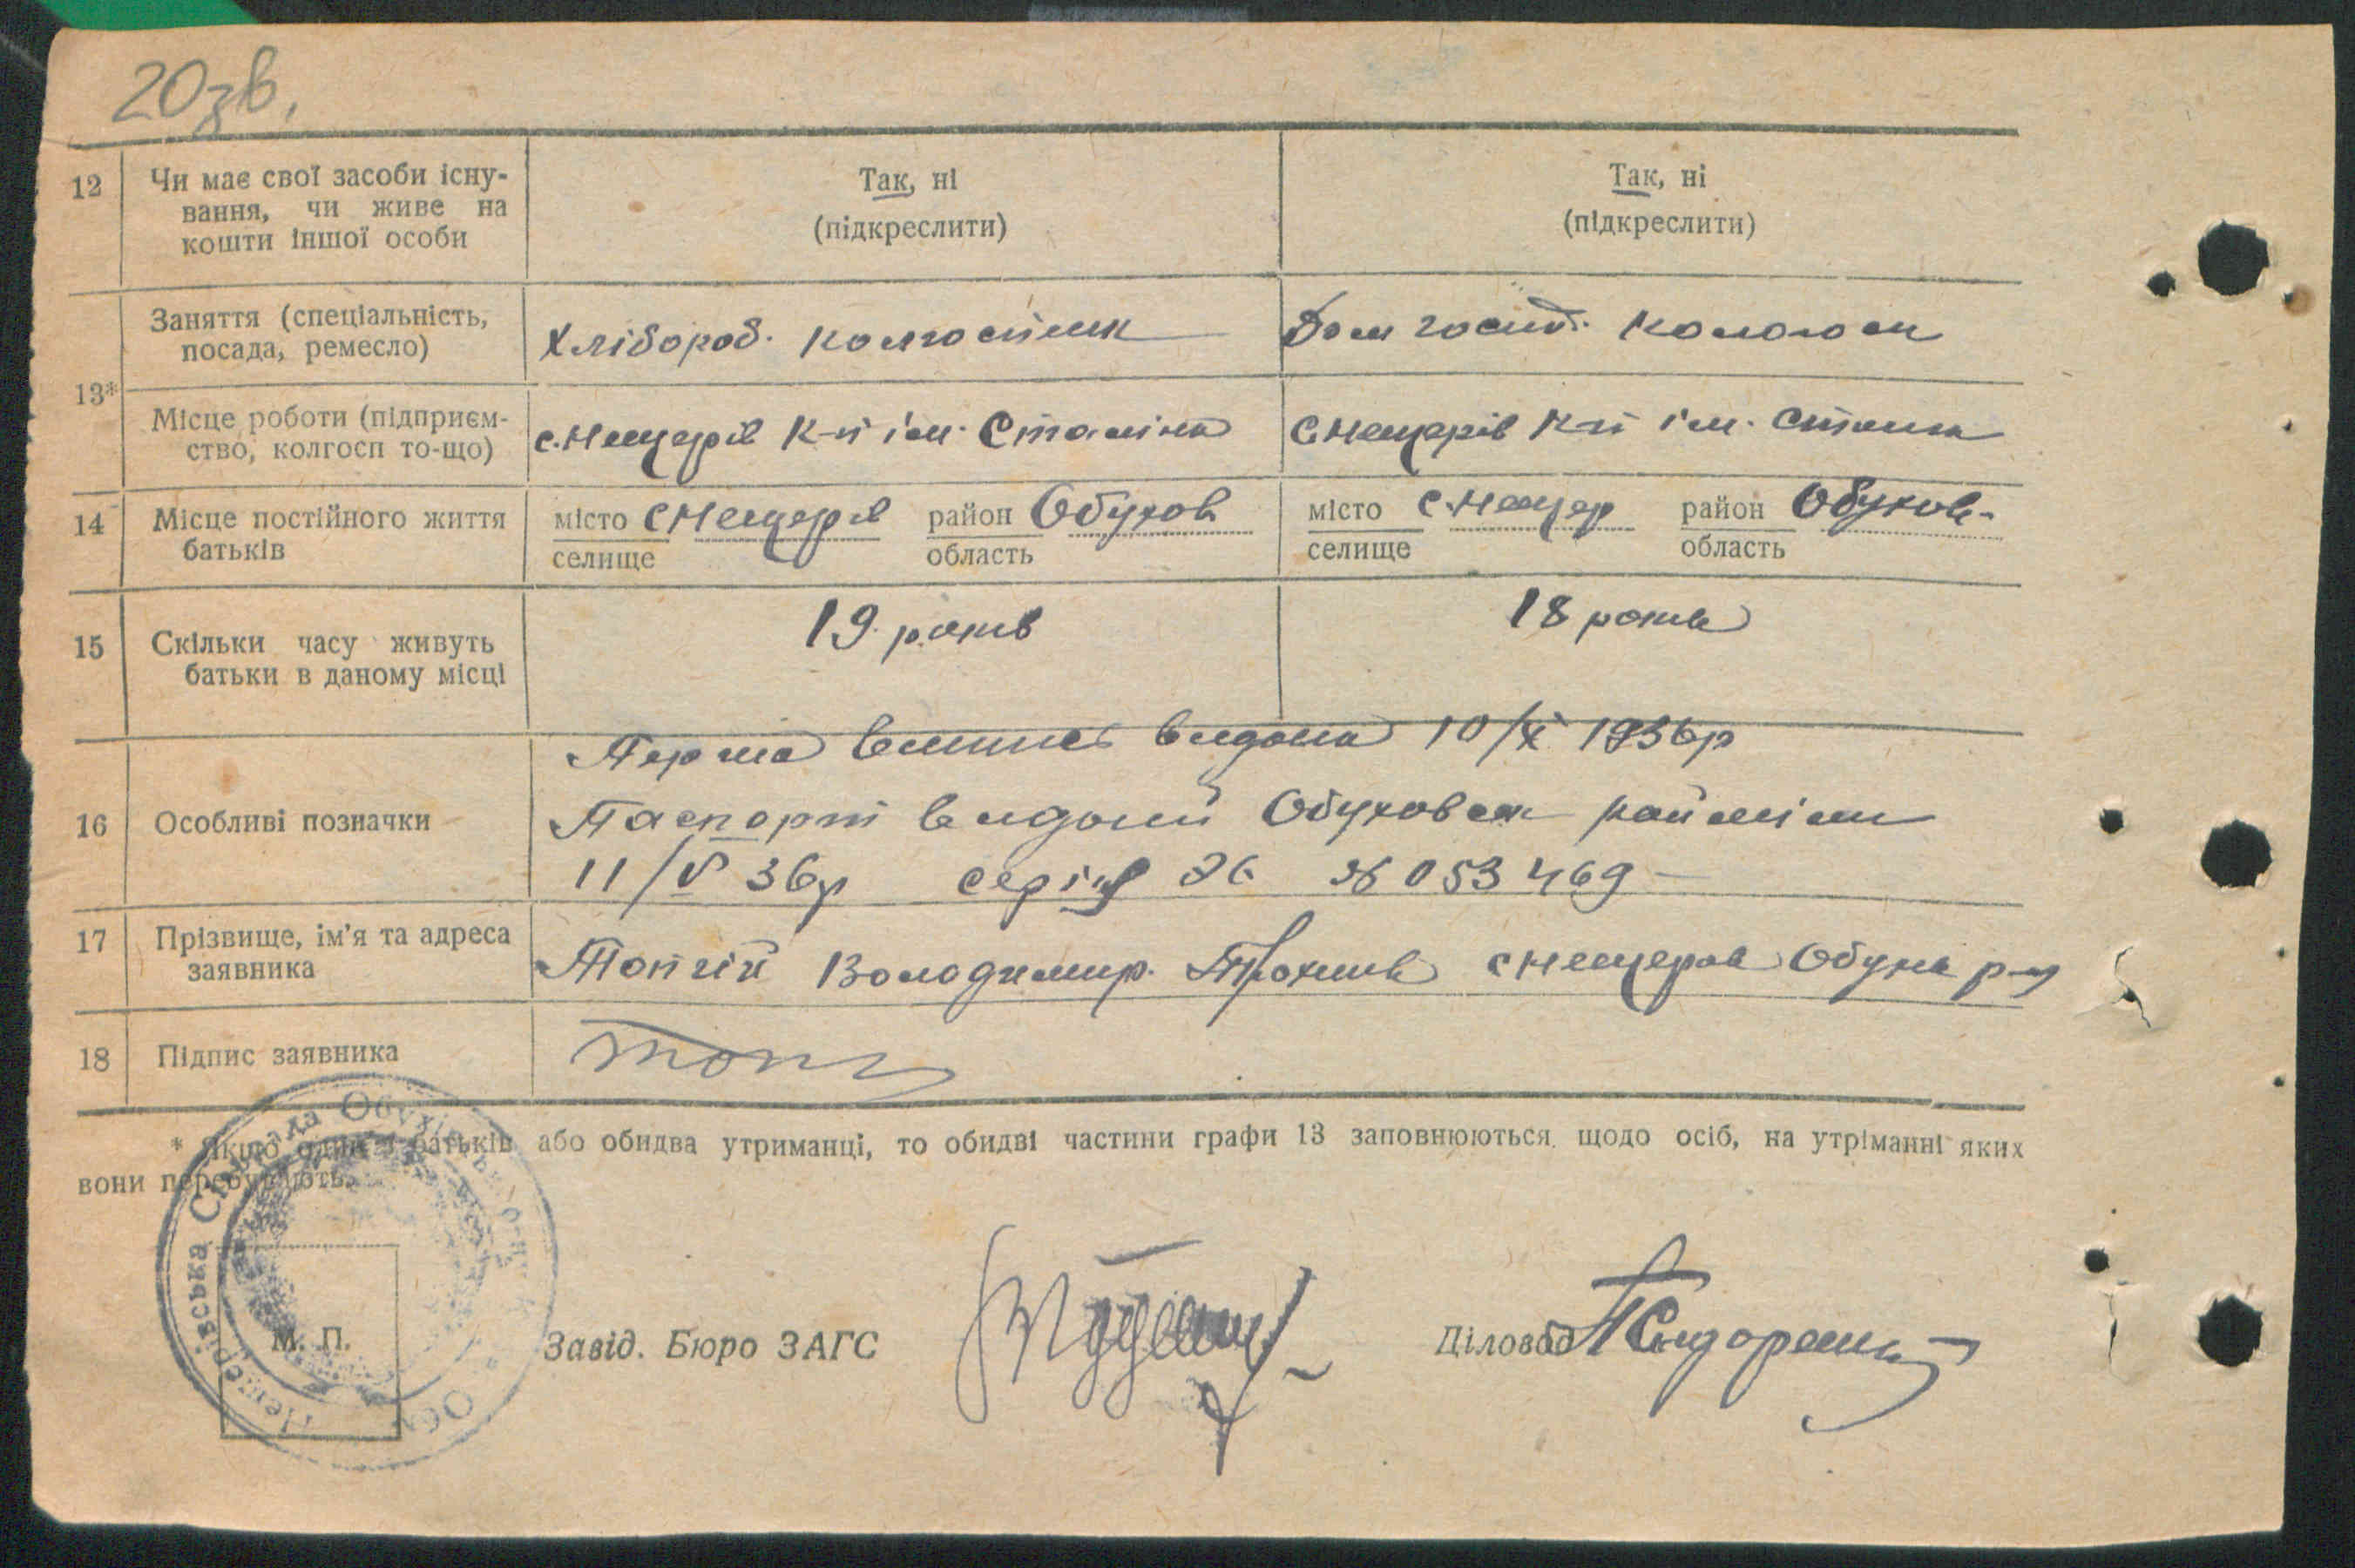 20зв.
12 Чи має свої засоби існу-
вання, чи живе на
кошти іншої особи
Так, ні
(підкреслити)
Так, ні
(підкреслити)
13*
Заняття (спеціальність,
посада, ремесло)
Хлібороб. колгоспник
Дом госпд. колгосп
Місце роботи (підприєм-
ство, колгосп то-що)
с. Нещерів к-п ім. Сталіна
с. Нещерів к-п ім. Сталіна
14 Місце постійного життя
батьків
місто с Нещерів район Обухов
селище область
місто с. Нещер район Обухов-
селище область
15 Скільки часу живуть
батьки в даному місці
19 років
18 років
16 Особливі позначки
Перша видана 10/X 1936р
Паспорт виданий Обуховск райміли
11/V 36р серія № 053469
17 Прізвище, ім'я та адреса
заявника
Топчій Володимир. с Нещеров Обухв р-н
18 Підпис заявника
Топч
* Якщо один з батьків або обидва утриманці, то обидві частини графи 13 заповнюються щодо осіб, на утріманні яких
вони перебувають.
Нещерівська Сільрада Обухівського р-ну
М. П.
Завід. Бюро ЗАГС
Діловод Сидоренк